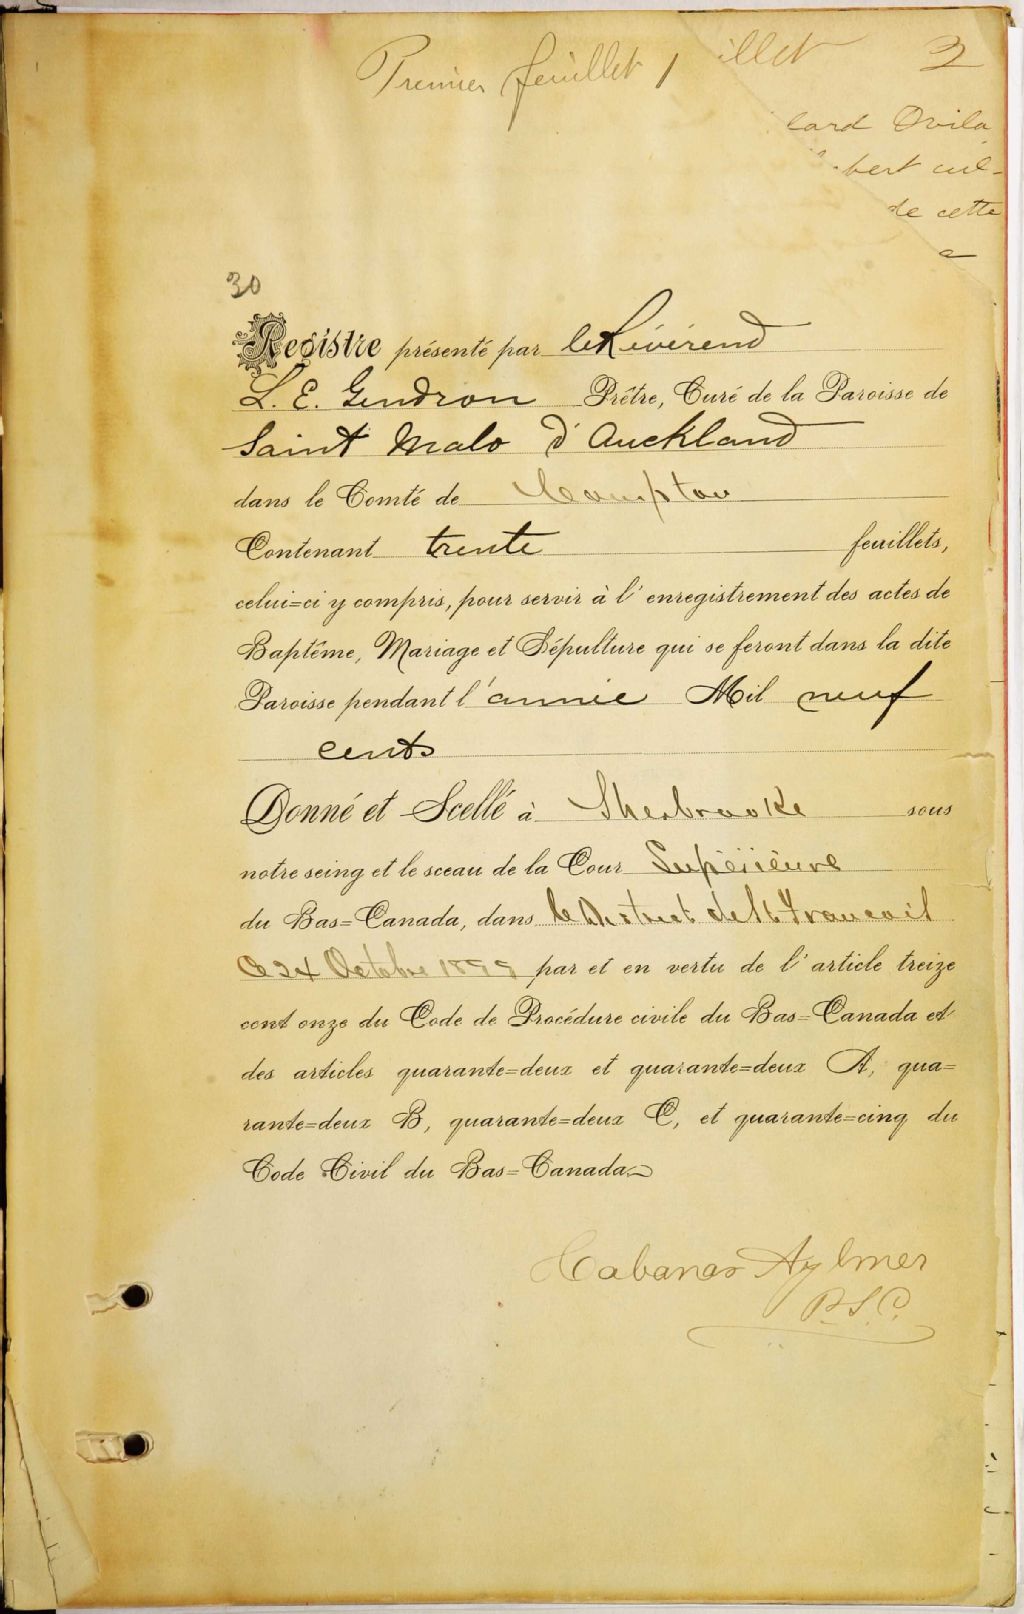 Premier feuillet 1
illet 2
lard Ovila
bert cul-
de cette
30
Registre présenté par le Révérend
L. E. Gendron Prêtre, Curé de la Paroisse de
Saint Malo d'Auckland
dans le Comté de Compton
Contenant trente feuillets,
celui=ci y compris, pour servir à l'enregistrement des actes de
Baptême, Mariage et Sépulture qui se feront dans la dite
Paroisse pendant l'année Mil neuf
cents
Donné et Scellé à Sherbrooke sous
notre seing et le sceau de la Cour Supérieure
du Bas=Canada, dans le District de St François
Ce 24 Octobre 1899 par et en vertu de l'article treize
cent onze du Code de Procédure civile du Bas=Canada et
des articles quarante=deux et quarante=deux A, qua=
rante=deux B, quarante=deux C, et quarante=cinq du
Code Civil du Bas=Canada
Cabanas Aylmer
P.S.C.